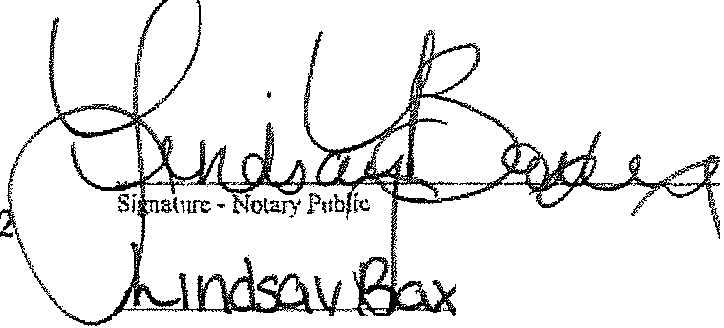 Lindsay
Signature - Notary Public
2
Lindsay Bax